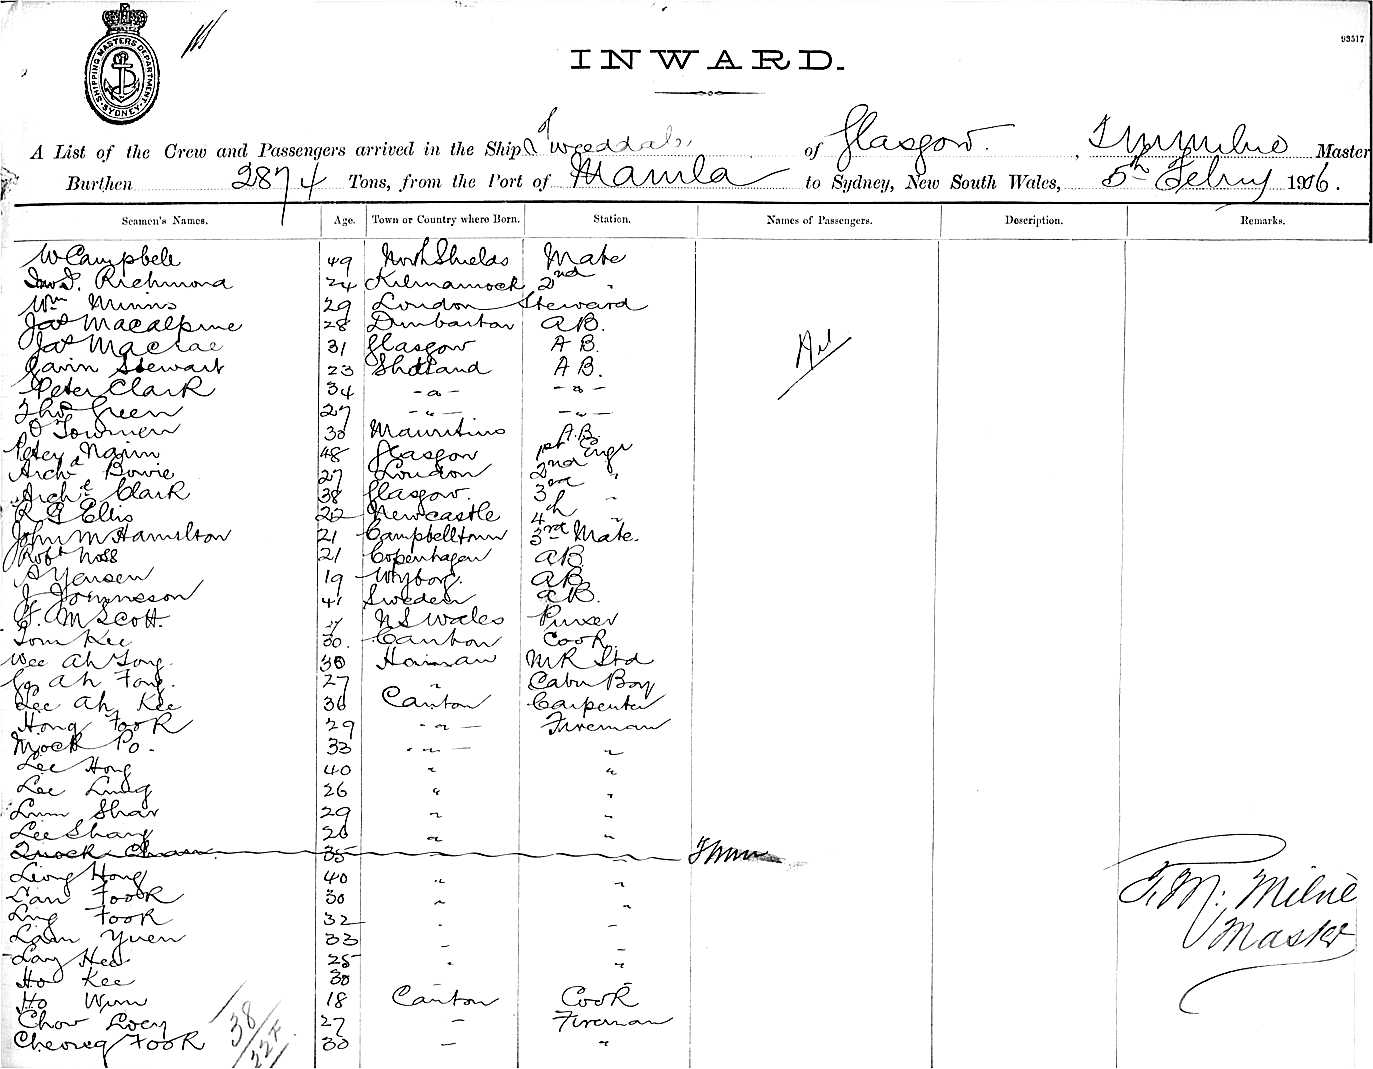 SHIPPING MASTERS DEPARTMENT SYDNEY
93517
INWARD.
A List of the Crew and Passengers arrived in the Ship Tweeddale of Glasgow. , T M Milne Master
Burthen 2874 Tons, from the Port of Manila to Sydney, New South Wales, 5th Febry 1906.
Seamen's Names. Age. Town or Country where Born. Station. Names of Passengers. Description. Remarks.
W Campbell 49 North Shields Mate
Jno. Richmond 24 Kilmarnock 2nd "
Wm Minns 29 London Steward
Jas Macalpine 28 Dumbarton AB.
Jas Macrae 31 Glasgow AB.
Nil
Gavin Stewart 23 Shetland AB.
Peter Clark 34 - " - - " -
Thos Green 27 - " - - " -
O 30 Mauritius A.B.
Peter Nairn 48 Glasgow 1st Engr
Archd Bowie 27 London 2nd "
Archd Clark 38 Glasgow. 3rd "
R G Ellis 22 Newcastle 4th "
John M Hamilton 21 Campbelltown 3rd Mate.
Robt 21 Copenhagen AB
S Yensen 19 Wyborg. AB
J 41 Sweden AB.
J. M Scott. N S Wales Purser
Tom Kee 30. Canton Cook
Wee Ah Tong. 30 Hainan MR Std
Go Ah Fong. 27 " Cabin Boy
Lee Ah Kee 36 Canton Carpenter
Hong Fook 29 - " - Fireman
Mock Po. 33 - " - "
Lee Hong 40 " "
Lee Ling 26 " "
Lum Shar 29 " "
Lee Shang 26 " "
Quock Chan 35
Leong Hong 40 " "
Lan Fook 30 " "
T. M. Milne
Ling Fook 32 " "
Master
Lam Yuen 33 " "
Lay Hee 25 " "
Ho Kee 30 " "
Ho Winn 18 Canton Cook
Chow Loey 27 " Fireman
Cheong Fook 30 " "
38
22F